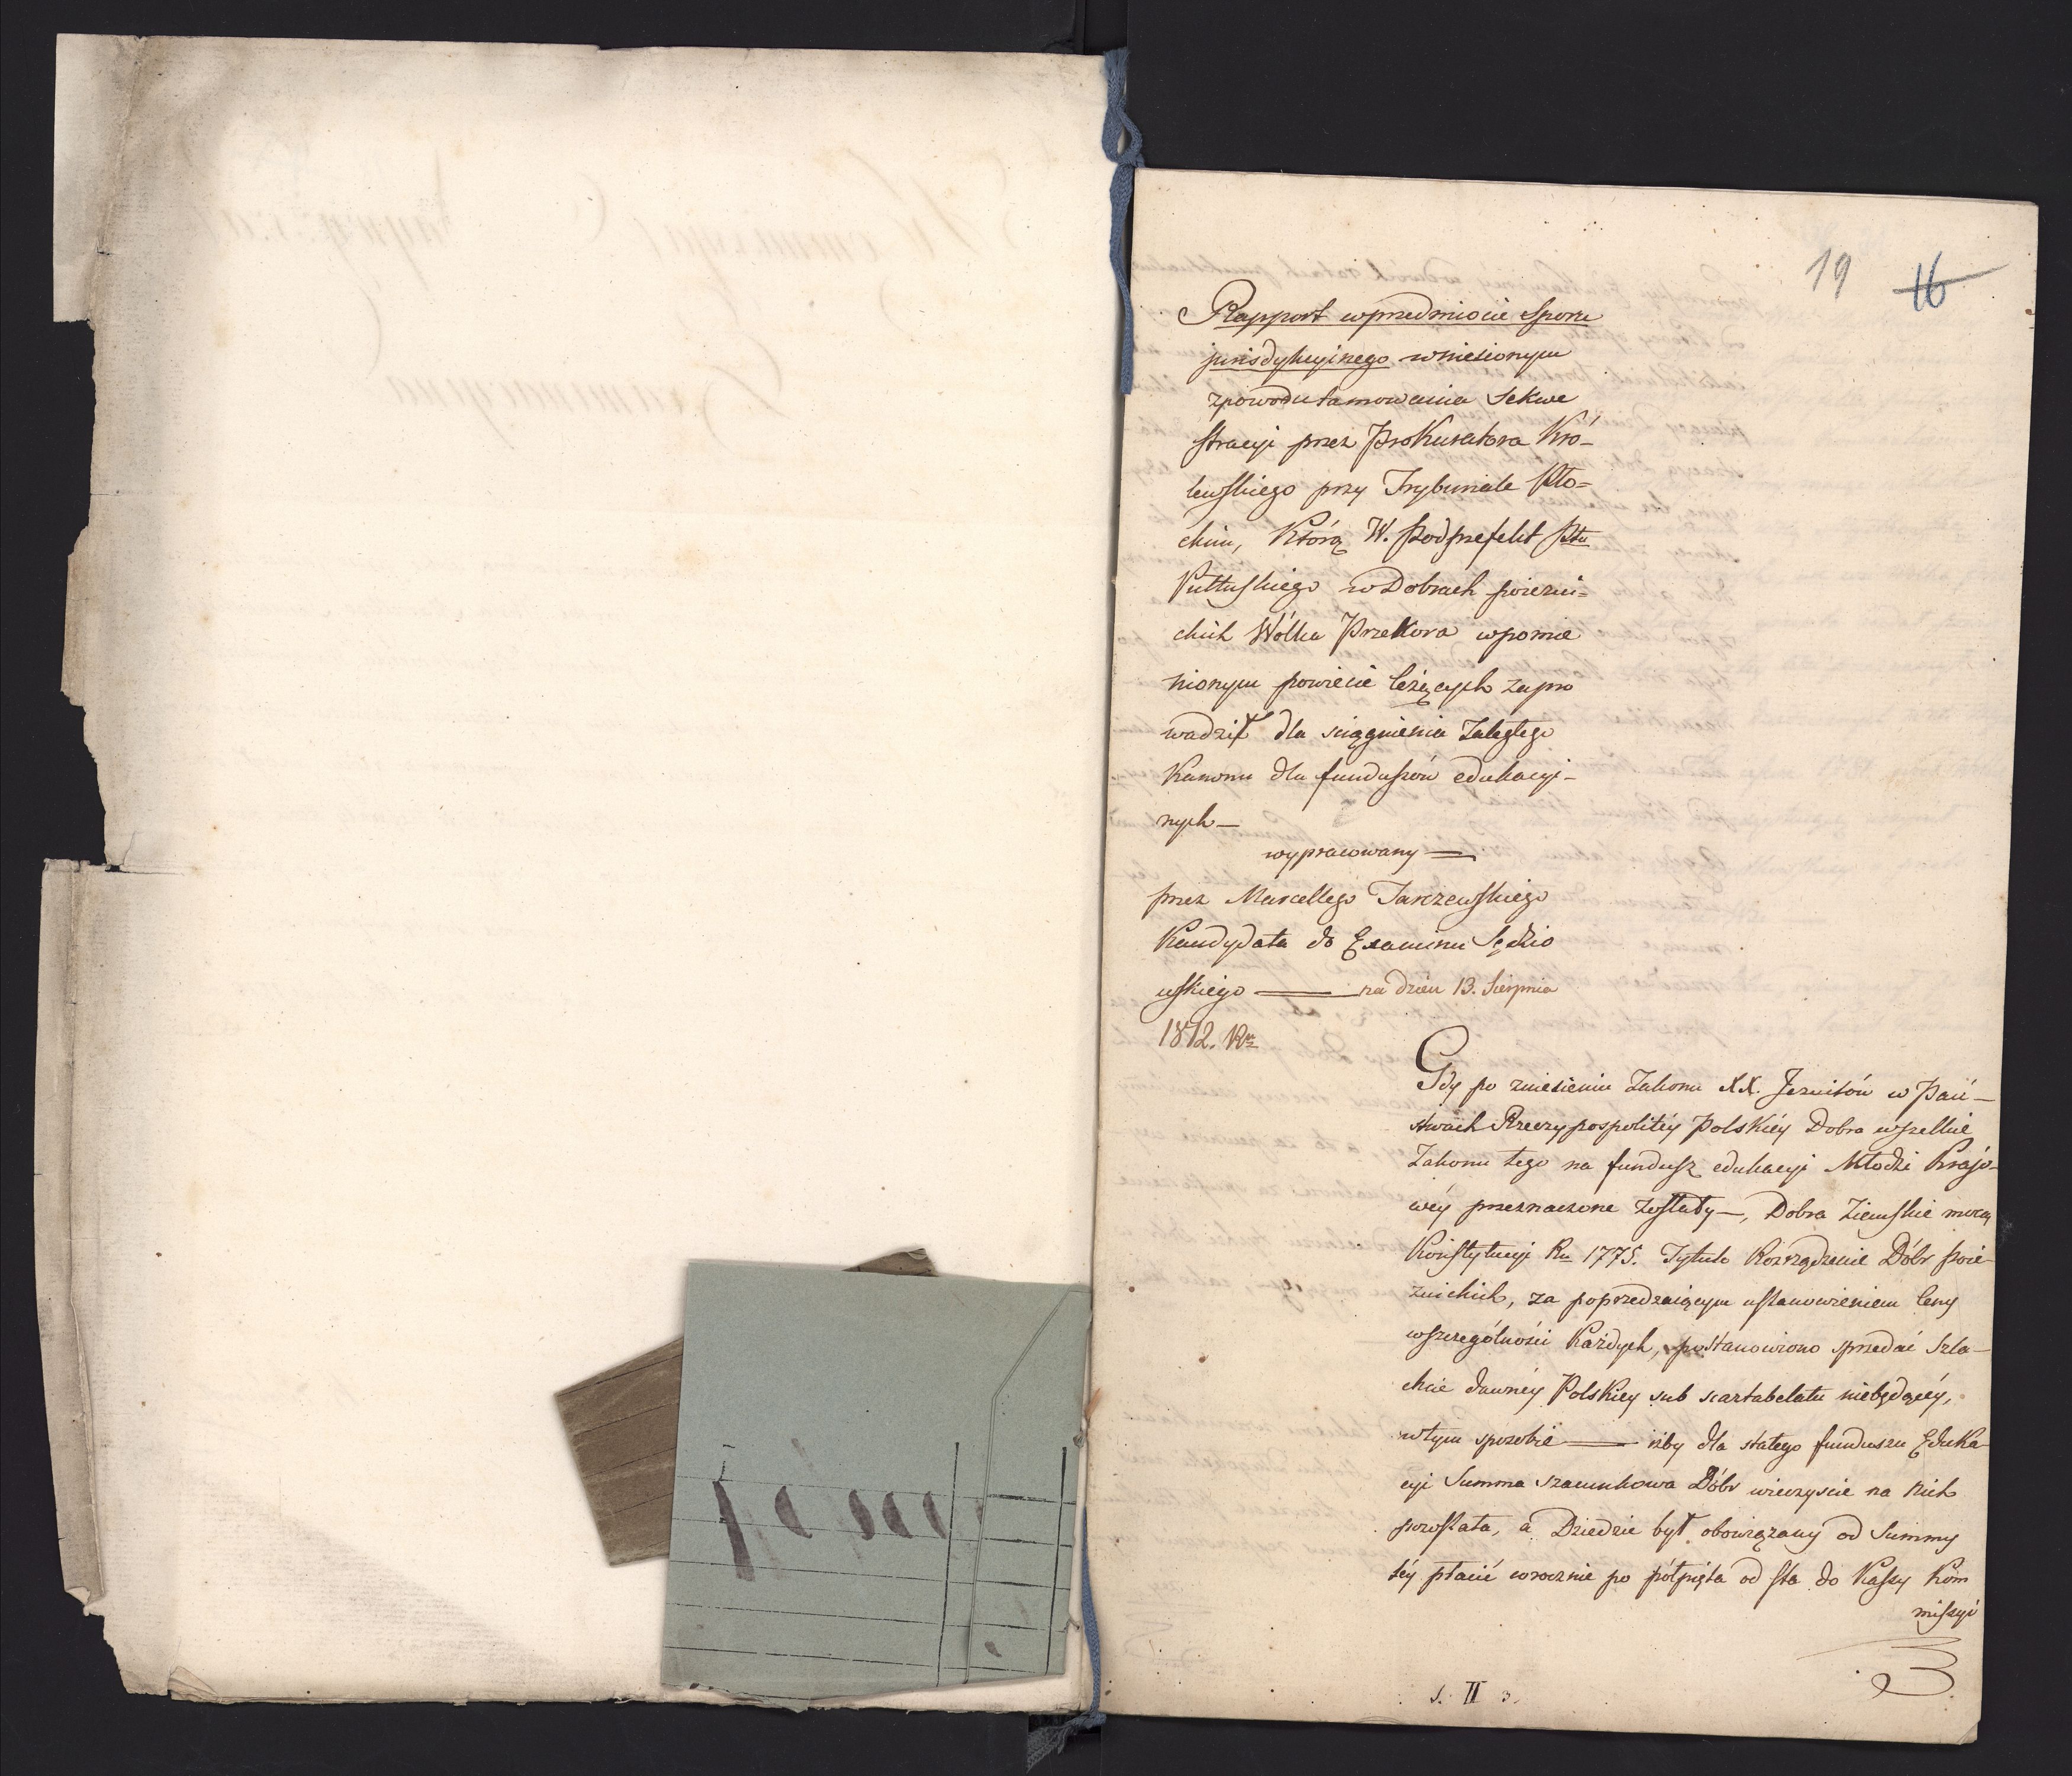 19 16
Rapport w przedmiocie Sporu
jurisdykcyjnego wniesionym
z powodu tamowania Sekwe
stracyi przez Prokuratora Kró-
lewskiego przy Trybunale Pło-
ckim, Którą W. Podprefekt Pttu
Pułtuskiego w Dobrach poiezui-
ckich Wólka Przekora w pomie
nionym powiecie leżących zapro
wadził dla sciągnienia Zaległego
Kanonu dla funduszów edukacyi-
nych—
wypracowany —
przez Marcellego Tarczewskiego
Kandydata do Examinu Sędzio
wskiego — na dzien 13. Sierpnia
1812. Ru
Gdy po zniesieniu Zakonu XX. Jezuitów w Pań-
stwach Rzeczypospolitéy Polskiéy Dobra wszelkie
Zakonu tego na fundusz edukacyi Młodzi Krajo-
wéy przeznaczone zostały—, Dobra Ziemskie mocą
Konstytucyi Ru 1775. Tytuło Rozrządzenie Dóbr poie-
zuickich, za poprzedzaiącym ustanowieniem Ceny
w szczególności Każdych, postanowiono sprzedać Szla-
chcie dawnéy Polskiey sub scartabelatu niebędącéy,
w tym sposobie — iżby dla stałego funduszu Eduka
cyi Summa szacunkowa Dóbr wieczyscie na nich
pozostała, a Dziedzic był obowiązany od Summy
téy płacić corocznie po półpięta od sta do Kassy Kom
missyi
S. II 3.